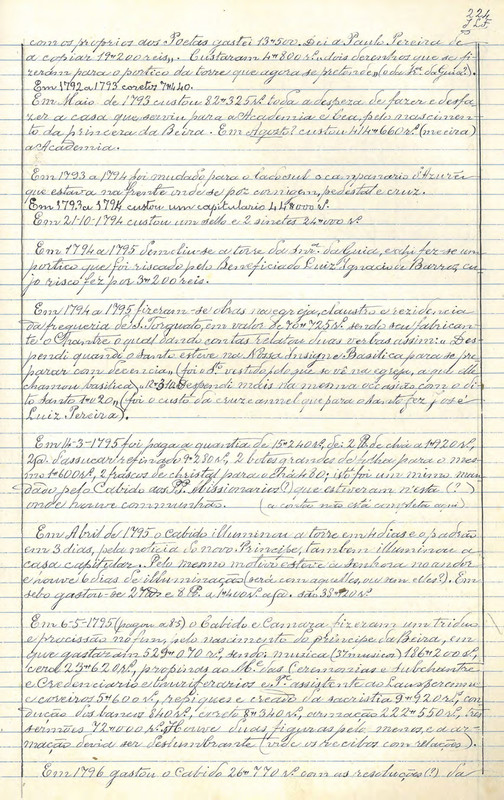 224
com os proprios aos Poetas gastei 13$500. Dei a Paulo Pereira de
a copiar 19$200 reis". Custaram 4$800 rs. dois desenhos que se fi-
zeram para o portico da torre que agora se pretende
Em 1792 a 1793 coretos 7$40.
Em Maio de 1793 custou 82$325 rs. toda a despeza de fazer e desfa-
zer a casa que serviu para a Academia e Eca, pelo nascimen-
to da princeza da Beira. Em Agosto custou 4$660 rs. (mecira)
a Academia.
Em 1793 a 1794 foi mudado para o lado sul o campanario d'Azurei
que estava na frente onde se poz cornigem, pedestal e cruz.
Em 1793 a 1794 custou um capitulario 44$000 rs.
Em 21-10-1794 custou um sello e 2 sinetes 24$000 rs.
Em 1794 a 1795 demoliu-se a torre da Snrª. da Guia, e fez-se um
portico que foi riscado pelo Beneficiado Luiz Ignacio de Barros, cu-
jo risco fez por 3$200 reis.
Em 1794 a 1795 fizeram-se obras na egreja, claustro e rezidencia
da freguezia de S. Torquato, em valor de 70$725 rs. sendo seu fabrican-
te o Chantre o qual dando contas relatou duas verbas assim: "Des-
pendi quando o santo esteve na Nossa Insigne Basilica para se pre-
parar com decencia" (foi o 1º. vestido pelo que se vê na egreja, a qual elle
chamou basilica) despendi mais da mesma occasião com o di-
to santo 1$020" (foi o custo da cruz e annel que para o santo fez José
Luiz Pereira).
Em 14-3-1795 foi paga a quantia de 15$240 rs., de: 2 lb. de chá a 1$920 rs.,
2 @. d'assucar refinado 9$280 rs., 2 botes grandes de folha para o mes-
mo 1$600 rs., 2 frascos de christal para o chá 480; isto foi um mimo man-
dado pelo Cabido aos PP. Missionarios (?) que estiveram n'esta (?)
onde houve communhão. (a conta não está completa aqui)
Em Abril de 1795 o Cabido illuminou a torre em 4 dias e o padrão
em 3 dias, pela noticia do novo Principe, tambem illuminou a
casa capitular. Pelo mesmo motivo esteve a Senhora no andor
e houve 6 dias de illuminação (será com aquelles, ou sem elles?). Em
sebo gastou-se 27 @. e 8 lb. a 1$400 a @. são
Em 6-5-1795 (pagou a 85) o Cabido e Camara fizeram um triduo
e procissão no fim, pelo nascimento do principe da Beira, em
que gastaram 529$070 rs., sendo: musica (37 musicos) 186$200 rs.,
cera 23$620 rs., propinas ao Mᵉ. das Ceremonias e Subchantre
e Credenciario e thuriferarios e Pᵉ. assistente ao Lausperenne
e coveiros 5$600 rs., repiques e creado da sacristia 9$920 rs., con-
dução dos bancos 840 rs., coreto 8$340 rs., armação 222$550 rs., tres
sermões 72$000 rs. Houve duas figuras pelo menos, e a ar-
mação devia ser deslumbrante (vide os recibos com relações).
Em 1796 gastou o Cabido 26$770 rs. com as resoluções (?) da